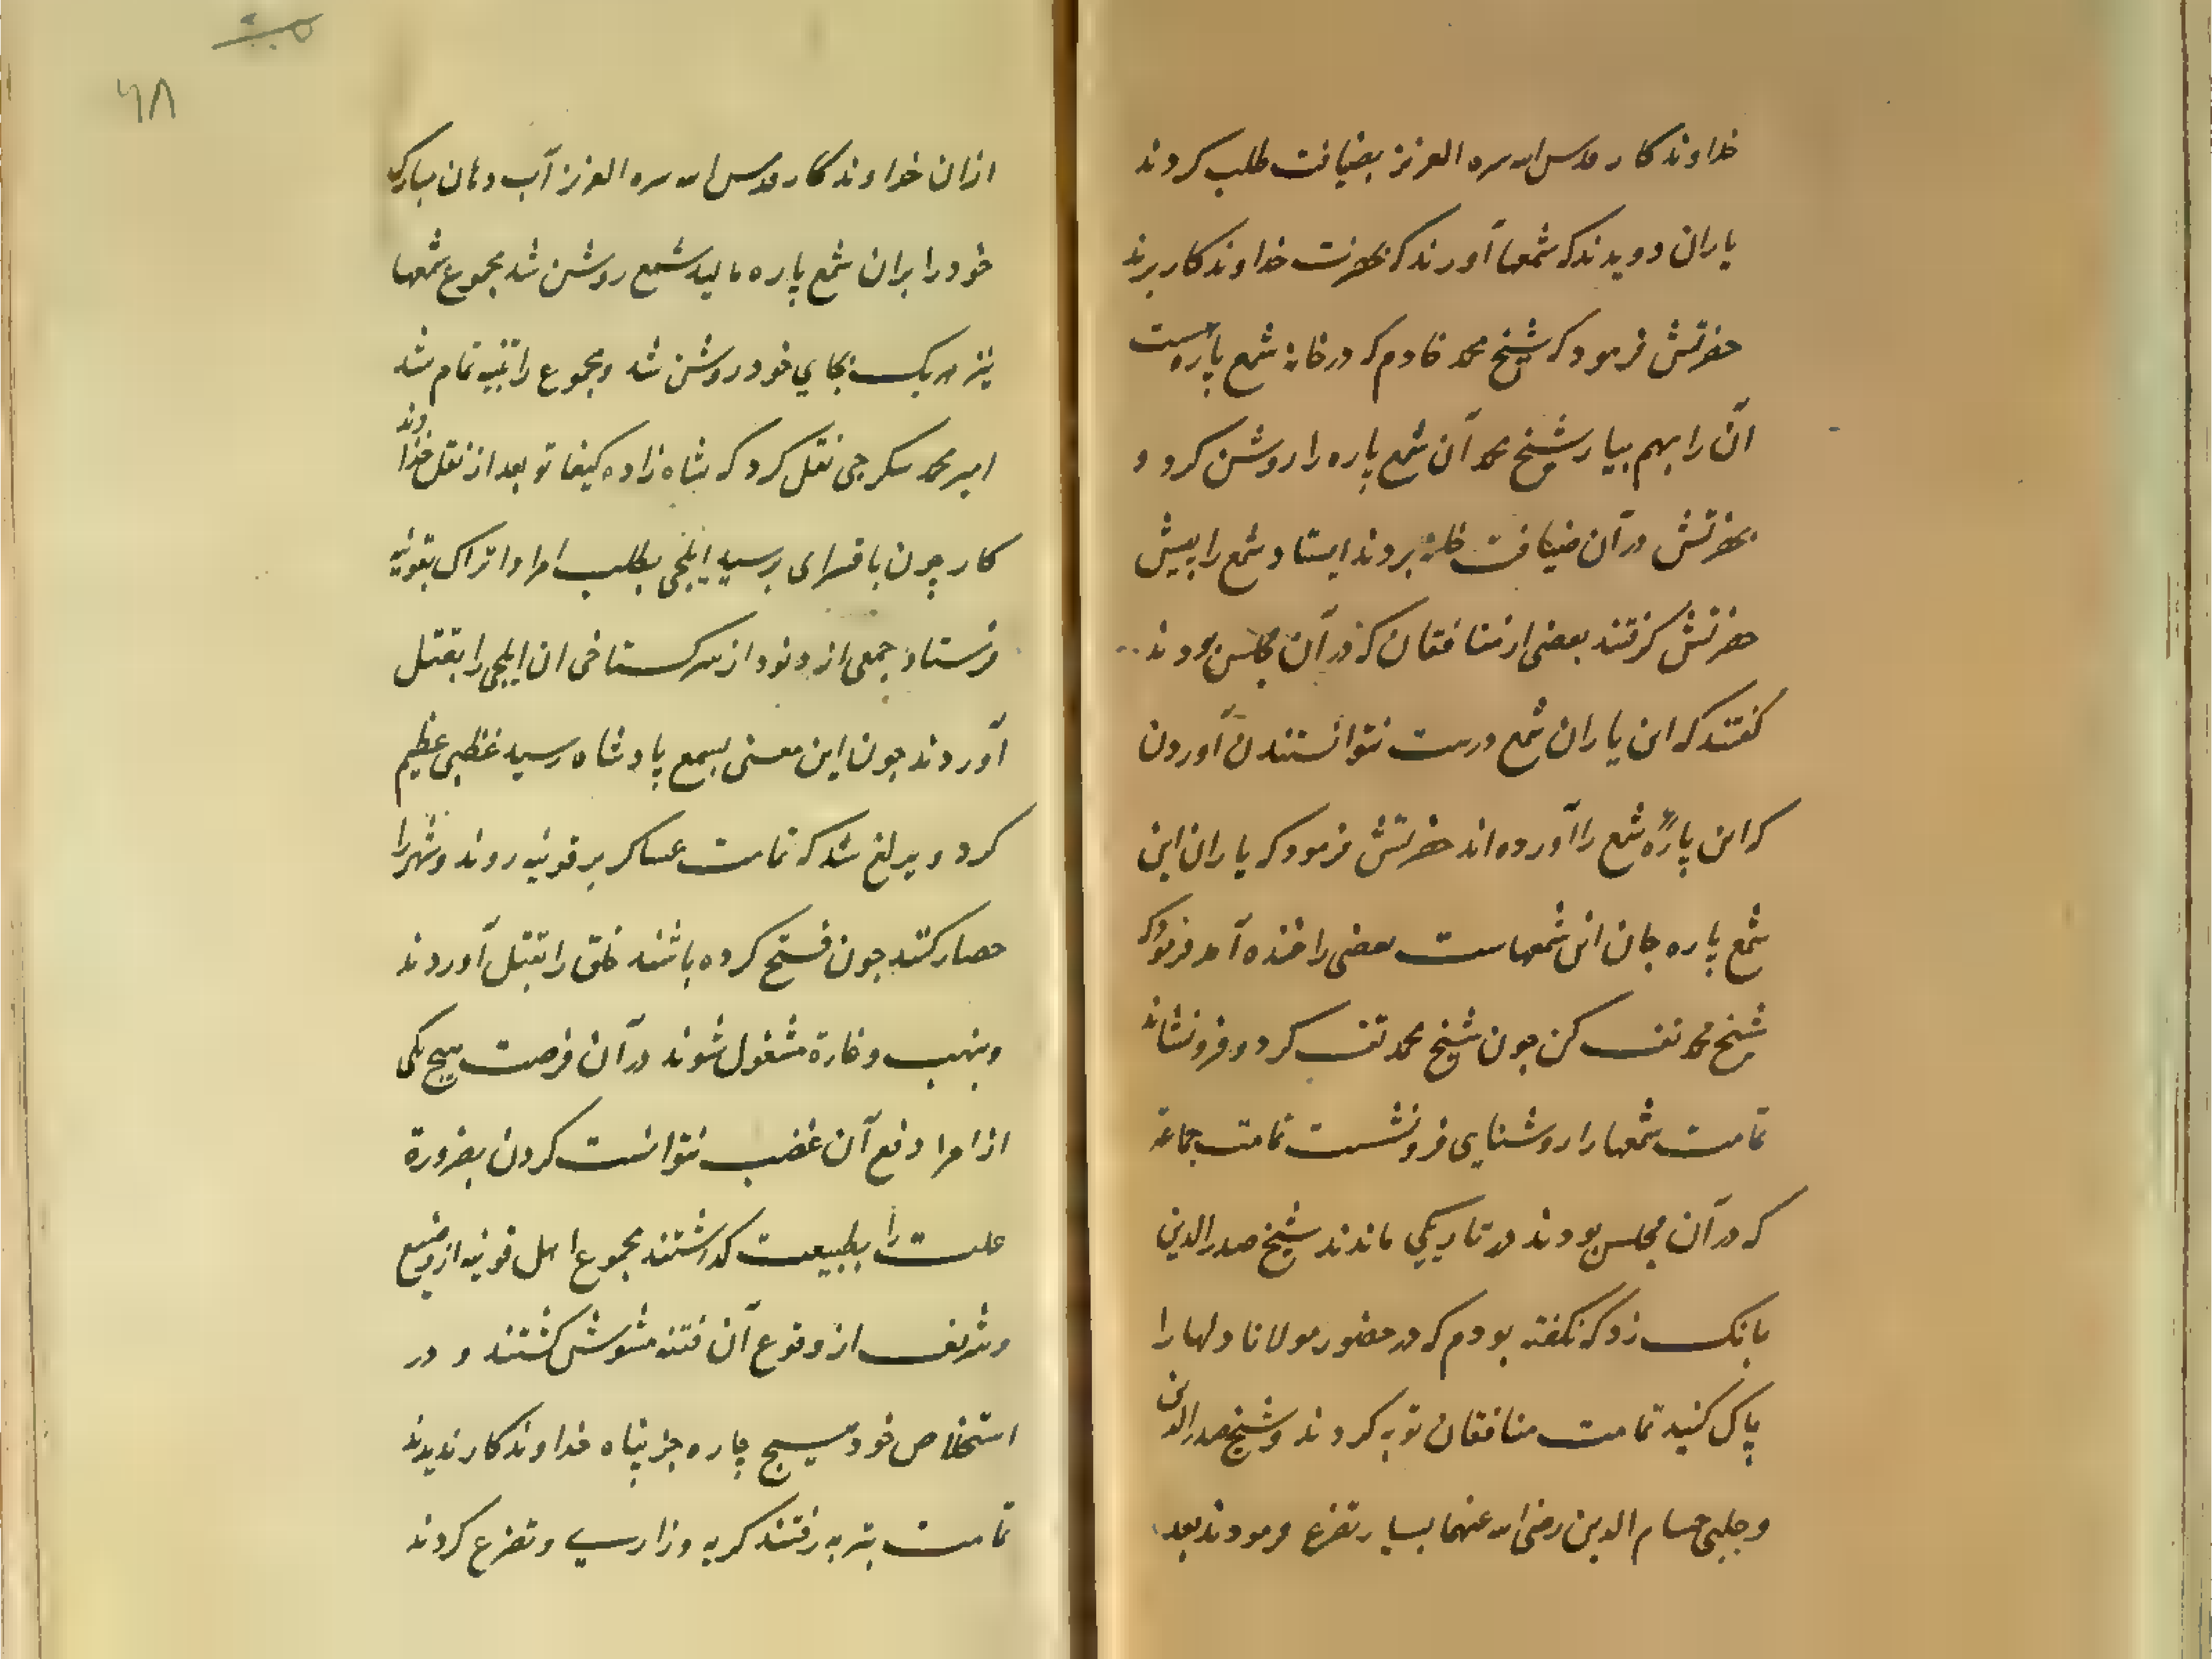 خداوندکار قدس الله سره العزیز بضیافت طلب کردند
یاران دویدند که شمعها آورند که بحضرت خداوندکار برند
حضرتش فرمود که شیخ محمد خادم که در خانه شمع پاره هست
آن را بهم بیار شیخ محمد آن شمع پاره را روشن کرد و
بحضرتش در آن ضیافت خانه بردند ایستاد شمع را پیش
حضرتش گرفتند بعضی از منافقان که در آن مجلس بودند
گفتند که این یاران شمع درست نتوانستندن آوردن
که این پارهٔ شمع را آورده‌اند حضرتش فرمود که یاران این
شمع پاره جان این شمعهاست بعضی را خنده آمد فرمود که
شیخ محمد تف کن جون شیخ محمد تف کرد و فرونشاند
تمامت شمعها را روشنایی فرونشست تمامت جماعة
که در آن مجلس بودند در تاریکی ماندند شیخ صدرالدین
بانک زد که نکفته بودم که در حضور مولانا دلها را
پاک کنید تمامت منافقان توبه کردند و شیخ صدرالدین
و جلبی حسام الدین رضی الله عنهما بسیار تضرع فرمودند بعد
۶۸
ازان خداوندکار قدس الله سره العزیز آب دهان مبارک
خود را بران شمع پاره مالید شمع روشن شد مجموع شمعها
نیز هر یک بجای خود روشن شد و مجموع را تنبیه تمام شد
امیر محمد سکرجی نقل کرد که شاه زاده کیغاتو بعد از نقل خداوند
کار جون باقسرای رسید ایلجی بطلب امرا و اتراک بقونیه
فرستاد جمعی از رنود از سر کستاخی ان ایلجی را بقتل
آوردند جون این معنی بسمع پادشاه رسید غضبی عظیم
کرد و یرلغ شد که تمامت عساکر بر قونیه روند و شهر را
حصار کنند جون فتح کرده باشند خلق را بقتل آوردند
و بنهب و غارة مشغول شوند در آن فرصت هیج یکی
از امرا دفع آن غضب نتوانست کردن بضرورة
علت را بطبیعت کذاشتند مجموع اهل قونیه از وضیع
و شریف از وقوع آن فتنه مشوش کشتند و در
استخلاص خود هیج چاره جز پناه خداوندکار ندیدند
تمامت بتربه رفتند کریه و زاریی و تضرع کردند